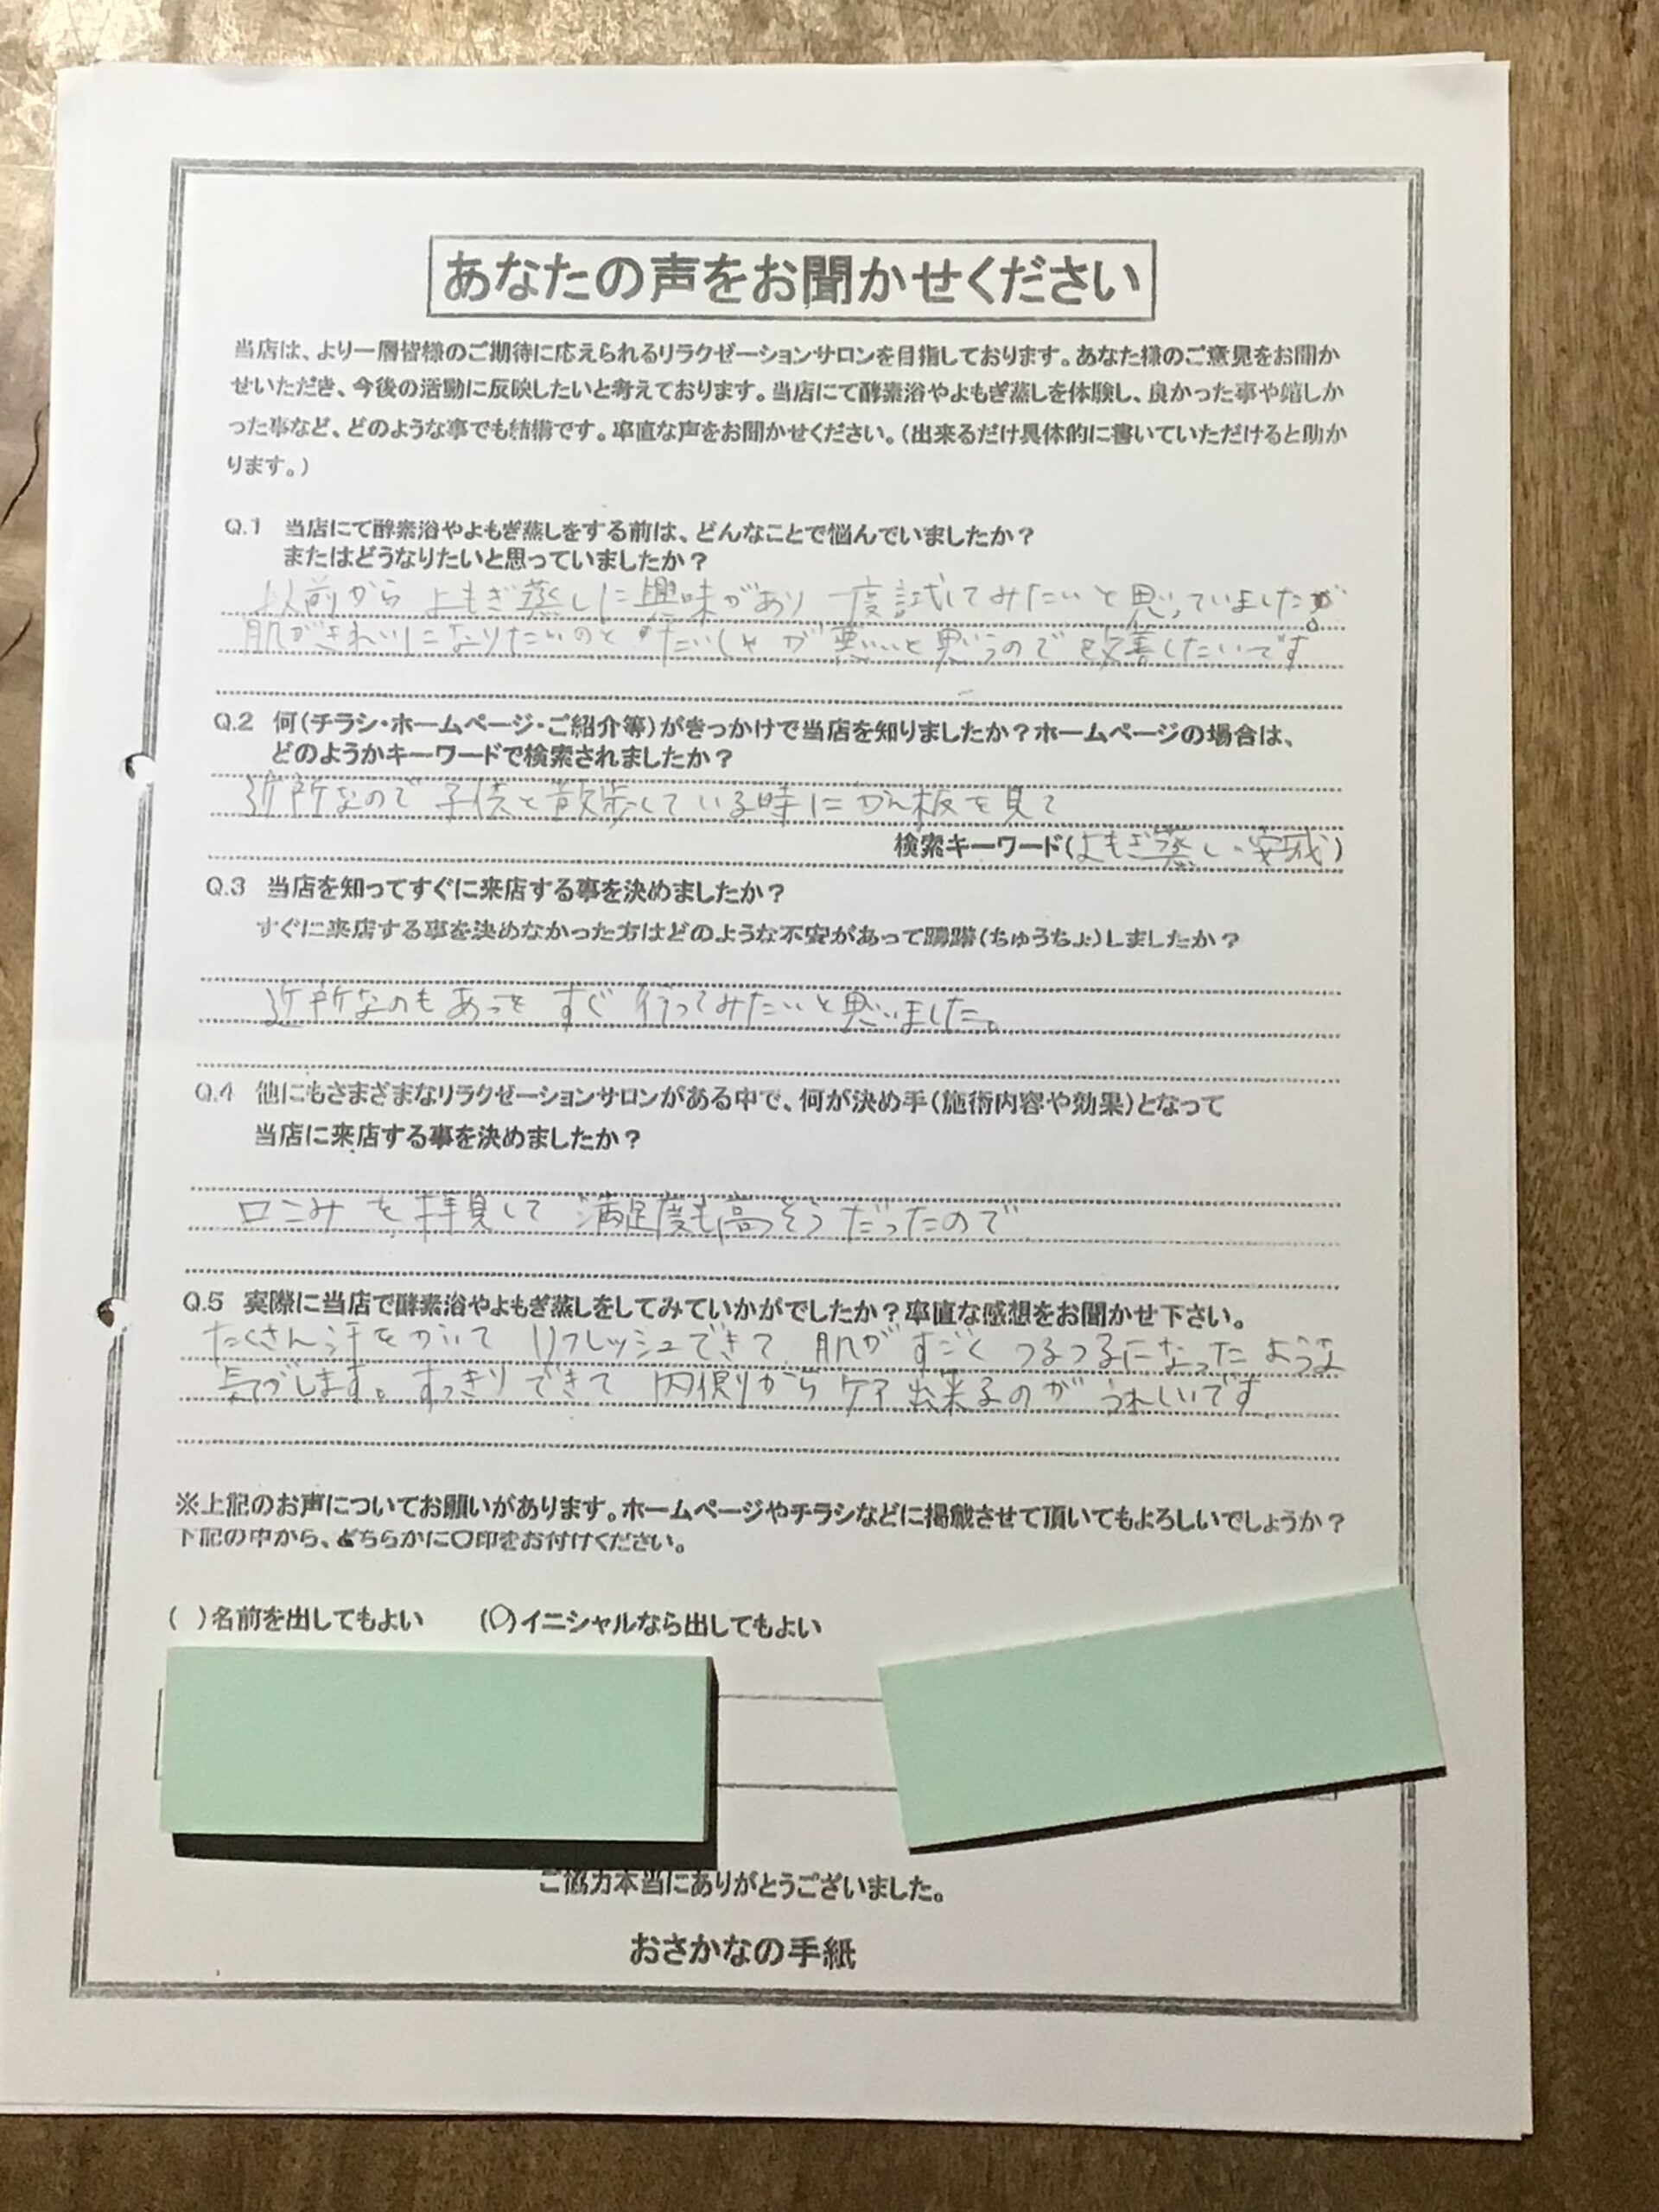 あなたの声をお聞かせください
当店は、より一層皆様のご期待に応えられるリラクゼーションサロンを目指しております。あなた様のご意見をお聞か
せいただき、今後の活動に反映したいと考えております。当店にて酵素浴やよもぎ蒸しを体験し、良かった事や嬉しか
った事など、どのような事でも結構です。率直な声をお聞かせください。（出来るだけ具体的に書いていただけると助か
ります。）
Q.1 当店にて酵素浴やよもぎ蒸しをする前は、どんなことで悩んでいましたか？
またはどうなりたいと思っていましたか？
以前から よもぎ蒸しに興味があり 一度試してみたいと思っていました。
肌がきれいになりたいのと たいしゃが悪いと思うので改善したいです
Q.2 何（チラシ・ホームページ・ご紹介等）がきっかけで当店を知りましたか？ホームページの場合は、
どのようかキーワードで検索されましたか？
近所なので 子供と散歩している時に かん板を見て
検索キーワード（よもぎ蒸し・安城）
Q.3 当店を知ってすぐに来店する事を決めましたか？
すぐに来店する事を決めなかった方はどのような不安があって躊躇（ちゅうちょ）しましたか？
近所なのもあって すぐ 行ってみたいと思いました。
Q.4 他にもさまざまなリラクゼーションサロンがある中で、何が決め手（施術内容や効果）となって
当店に来店する事を決めましたか？
口こみを拝見して 満足度も高そうだったので
Q.5 実際に当店で酵素浴やよもぎ蒸しをしてみていかがでしたか？率直な感想をお聞かせ下さい。
たくさん汗をかいて リフレッシュできて 肌がすごく つるつるになったような
気がします。すっきりできて 内側からケア出来るのが うれしいです
※上記のお声についてお願いがあります。ホームページやチラシなどに掲載させて頂いてもよろしいでしょうか？
下記の中から、どちらかに〇印をお付けください。
（ ）名前を出してもよい （〇）イニシャルなら出してもよい
ご協力本当にありがとうございました。
おさかなの手紙